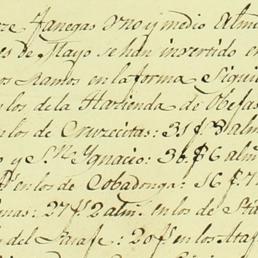 ze Fanegas Uno y medio Alm
es de Mayo se han insertido en
os Ramos en la forma Siguien
en los de la Hazienda de
en los de Cruzecitas: 31 f. 3 alm
o y Sn. Ygnacio: 36 f. 6 alm
en los de Cobadonga: 16 f. 7
mas: 27 f. 2 alm. en los de Sta
del Jarafe: 20 f. en los Ataj